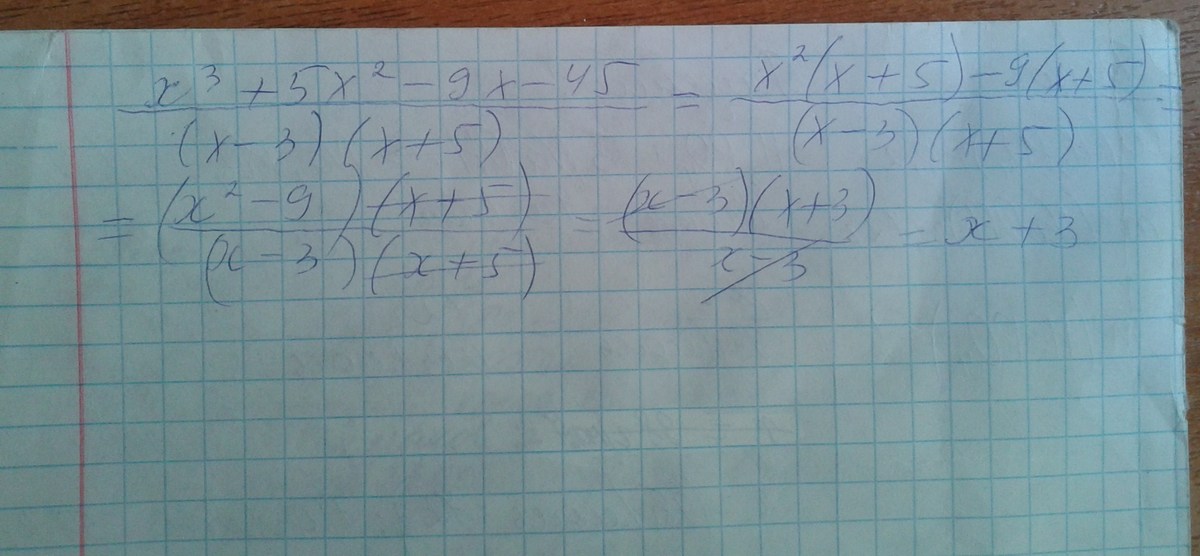 (x³ + 5x² - 9x - 45) / ((x - 3)(x + 5)) = (x²(x + 5) - 9(x + 5)) / ((x - 3)(x + 5)) =
= ((x² - 9)(x + 5)) / ((x - 3)(x + 5)) = ((x - 3)(x + 3)) / (x - 3) = x + 3